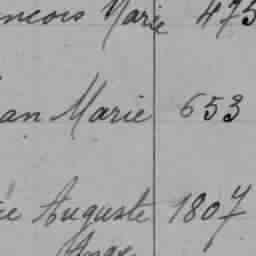 ncois Marie 475
an Marie 653
ée Auguste 1807
Ange